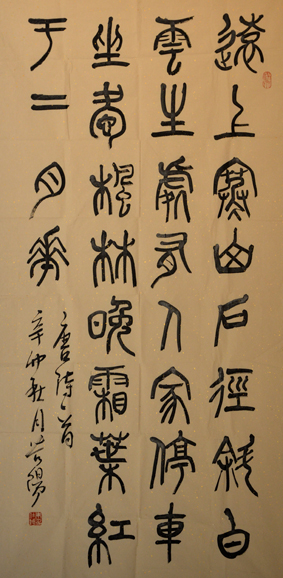 遠上寒山石徑斜白
雲生處有人家停車
坐愛楓林晚霜葉紅
于二月華
唐诗一首
辛卯秋月